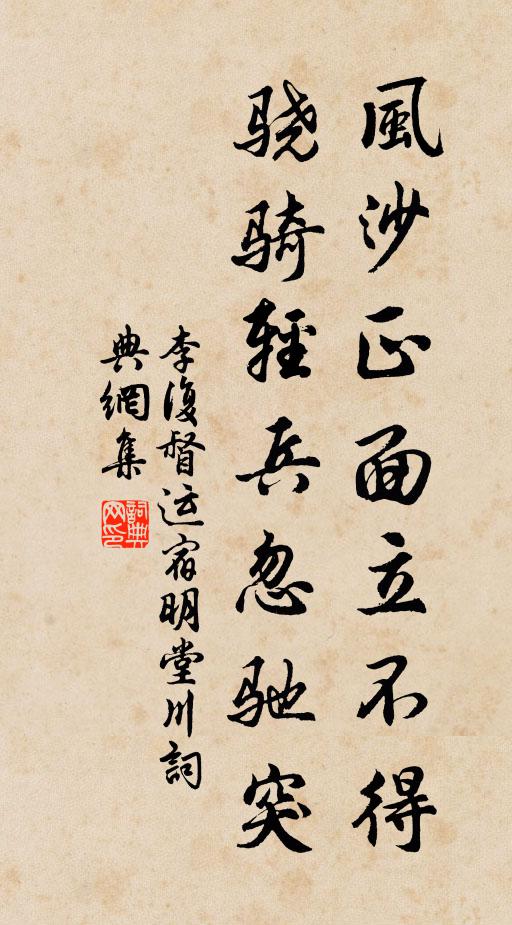 風沙正面立不得
骁骑輕兵忽驰突
李復督运宿明堂川詞
典網集
詞典
网印